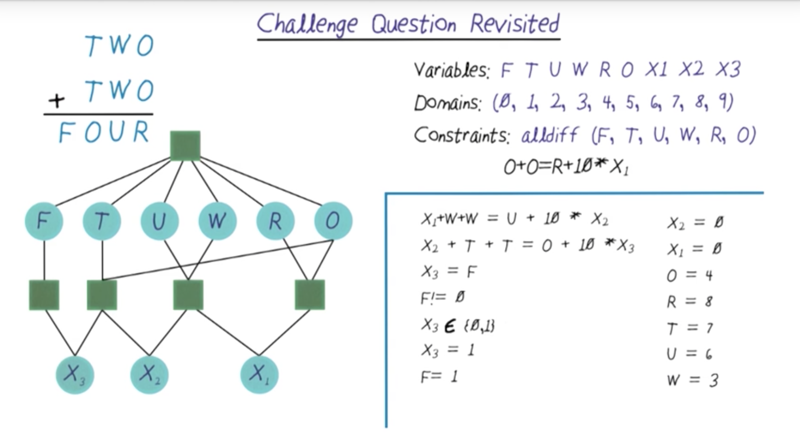 Challenge Question Revisited
TWO
+ TWO
FOUR
F T U W R O
X₃ X₂ X₁
Variables: F T U W R O X1 X2 X3
Domains: (0, 1, 2, 3, 4, 5, 6, 7, 8, 9)
Constraints: alldiff (F, T, U, W, R, O)
O+O=R+10*X₁
X₁+W+W = U + 10 * X₂
X₂ + T + T = O + 10 *X₃
X₃ = F
F!= 0
X₃ ∈ {0,1}
X₃ = 1
F= 1
X₂ = 0
X₁ = 0
O = 4
R = 8
T = 7
U = 6
W = 3